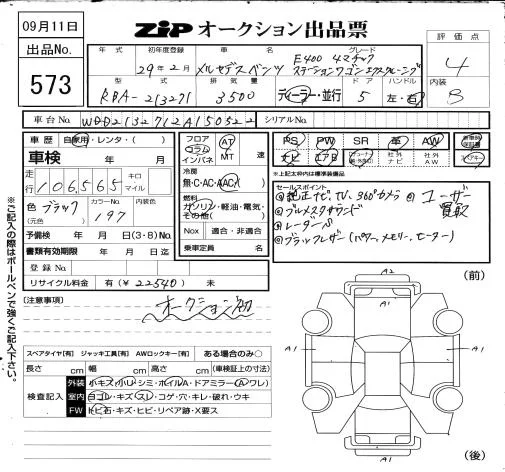 09月11日
ZIP オークション出品票
出品No.
573
年式 初年度登録 車名 グレード
29年2月 メルセデスベンツ E400 4マチック
ステーションワゴン
型式 排気量 ドア ハンドル
RBA-213271 3500 ディーラー・並行 5 左・右
評価点
4
内装
B
車台No. WDD2132712A150522 シリアルNo.
車歴 自家用・レンタ・( )
車検 年 月
走行 106,565 キロ マイル
色 ブラック カラーNo. 197 内装色
(元色)
予備検 年 月 日(3・8)No.
書類有効期限 年 月 日
登録No.
リサイクル料金 有(¥22540) 未
フロア コラム インパネ AT MT 速
冷房
無・C・AC・AAC
燃料
ガソリン・軽油・電気・その他( )
Nox 適合・非適合
乗車定員 名
PS PW SR 革 AW
ナビ エアB 社外ナビ 社外AW
*上記太枠内は標準装備品
セールスポイント
純正ナビ、TV、360°カメラ
ユーザー買取
ブルメスタサウンド
レーダーP
ブラックレザー(パワー、メモリー、ヒーター)
※ご記入の際はボールペンで強くご記入下さい。
(注意事項)
オークション初
スペアタイヤ[有] ジャッキ工具[有] AWロックキー[有] ある場合のみ○
長さ cm 幅 cm 高さ cm (車検証上の寸法)
検査記入
外装 小キズ・小U・シミ・ホイルA・ドアミラー(A・ワレ)
室内 ヨゴレ・キズ・スレ・コゲ・穴・キレ・破れ・ウキ
FW トビ石・キズ・ヒビ・リペア跡・X要ス
(前)
A2
A1
A1
A1
A1
(後)